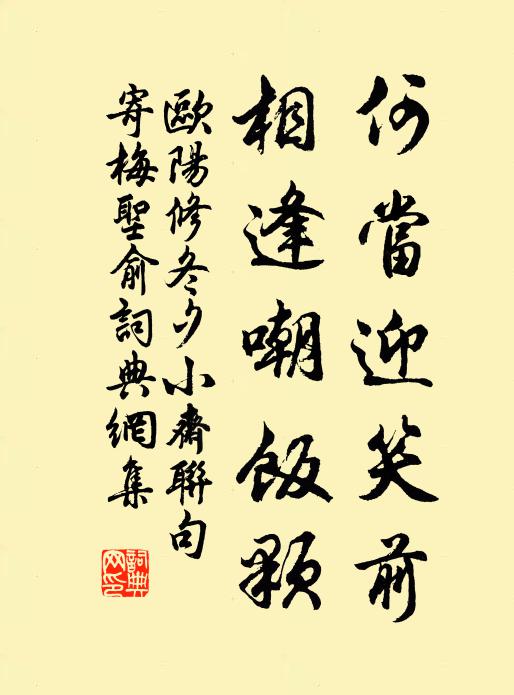 何當迎笑前
相逢嘲飯顆
歐陽修冬夕小齋聯句
寄梅聖俞詞典網集
詞典網印